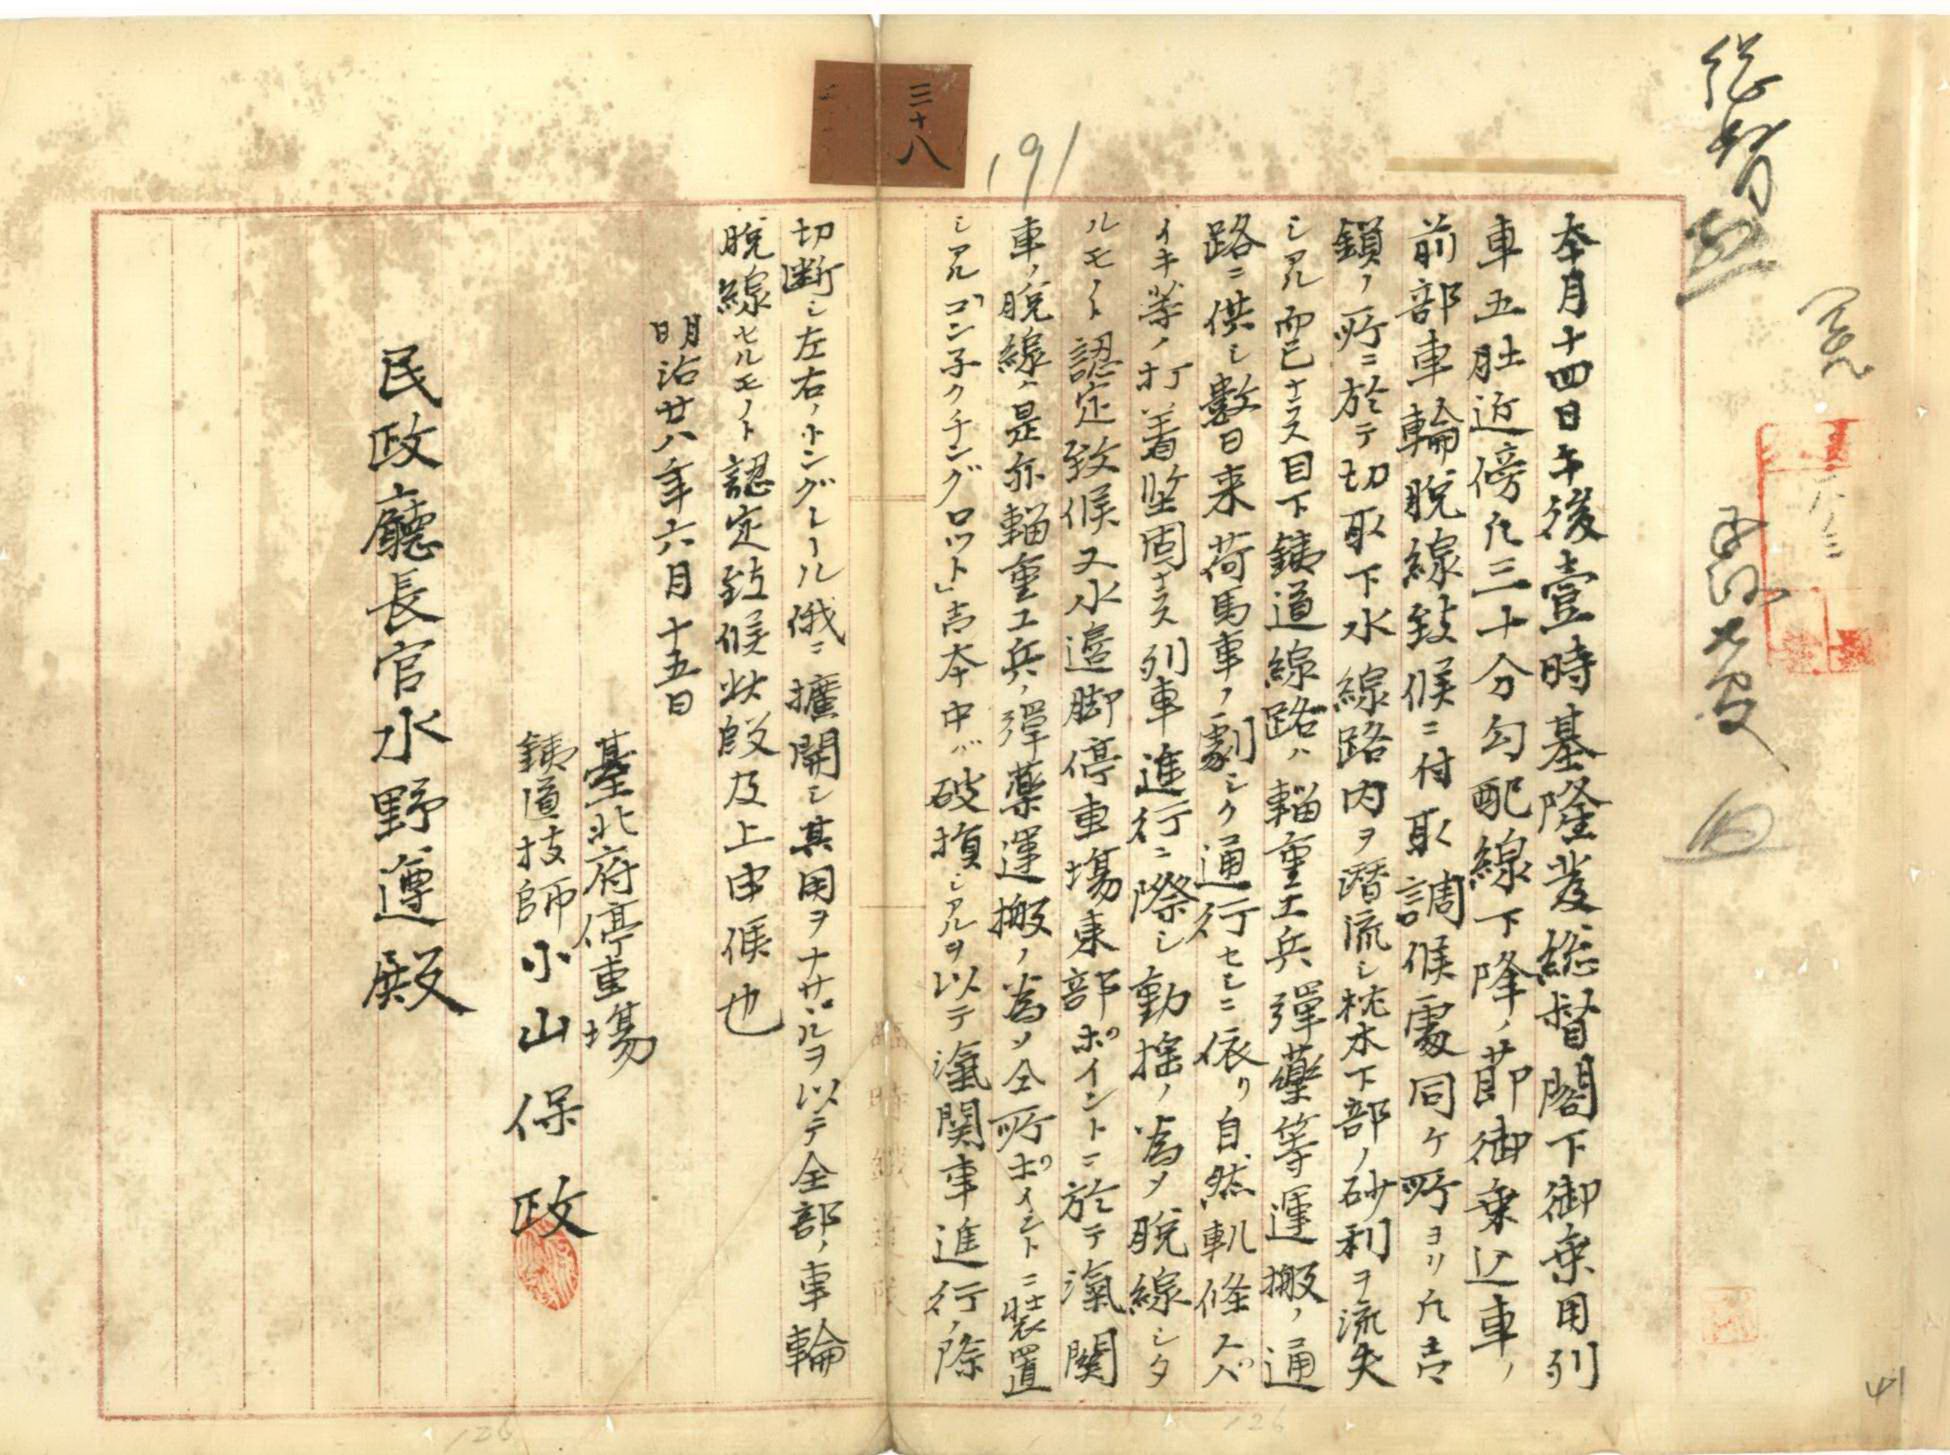 三十八
191
本月十四日午後壹時基隆發総督閣下御乗用列
車五肚近傍凡三十分勾配線下降ノ節御乗込車ノ
前部車輪脱線致候ニ付取調候處同ヶ所ヨリ凡壱
鎖ノ所ニ於テ切取下水線路内ヲ潜流シ枕木下部ノ砂利ヲ流失
シアル而已ナラス目下鉄道線路ハ輜重工兵彈藥等運搬ノ通
路ニ供シ數日来荷馬車ノ劇シク通行セシニ依リ自然軌條スパ
イキ等ノ打着堅固ナラス列車進行ニ際シ動揺ノ為メ脱線シタ
ルモノト認定致候又水邉脚停車塲東部ポイントニ於テ滊関
車ノ脱線ハ是亦輜重工兵ノ彈薬運搬ノ為メ仝所ポイントニ装置
シアル「コン子クチングロット」壱本中バ破損シアルヲ以テ滊関車進行ノ際
切断シ左右ノトングレール俄ニ擴開シ其用ヲナサヽルヲ以テ全部ノ車輪
脱線セルモノト認定致候此段及上申候也
明治廿八年六月十五日
臺北府停車塲
鉄道技師小山保政
民政廳長官水野遵殿
126
126
41